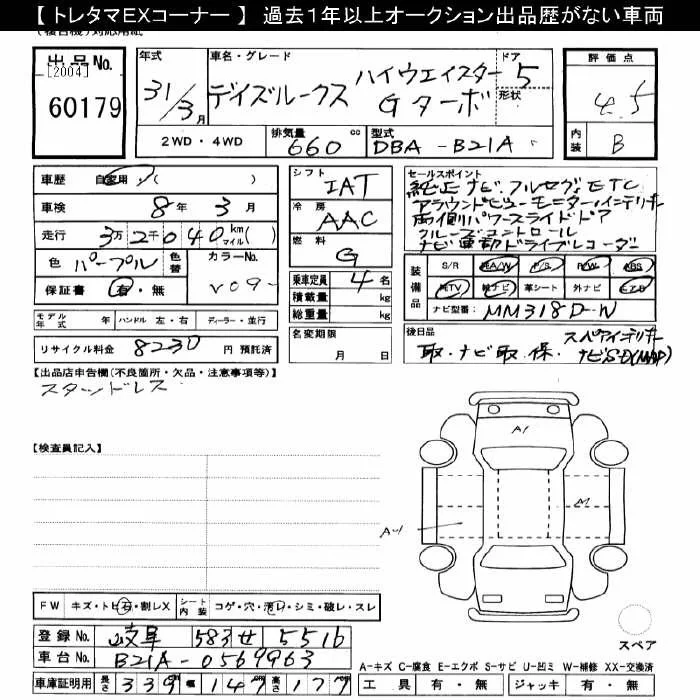 【 トレタマEXコーナー 】 過去1年以上オークション出品歴がない車両
出品No.
[2004]
60179
年式
31/3月
車名・グレード
デイズルークス ハイウェイスター
Gターボ
ドア
形状
5
2WD・4WD
排気量
660
cc
型式
DBA-B21A
評価点
4.5
内装
B
車歴 自家用・( )
車検 8年 3月
走行 3万2千040 km マイル( )
色 パープル
色替
カラーNo.
V09-
保証書 有・無
モデル年式 年 ハンドル 左・右 ディーラー・並行
リサイクル料金 8230 円 預託済
シフト
IAT
冷房
AAC
燃料
G
乗車定員 4 名
積載量 kg
総重量 kg
名変期限
月 日
セールスポイント
純正ナビ フルセグ ETC
アラウンドビューモニター
両側パワースライドドア
クルーズコントロール
ナビ連動ドライブレコーダー
装備品
S/R A/W P/S P/W ABS
純TV 純ナビ 革シート 外ナビ
ナビ型番: MM318D-W
後日品
取・ナビ取 保・
【出品店申告欄(不良箇所・欠品・注意事項等)】
スタッドレス
【検査員記入】
A1
FW キズ・トビ石・割レX
シート内装 コゲ・穴・汚レ・シミ・破レ・スレ
登録No. 岐阜 583 せ 5516
車台No. B21A-0569963
車庫証明用 長さ 339 幅 147 高さ 177
スペア
A-キズ C-腐食 E-エクボ S-サビ U-凹ミ W-補修 XX-交換済
工具 有・無 ジャッキ 有・無